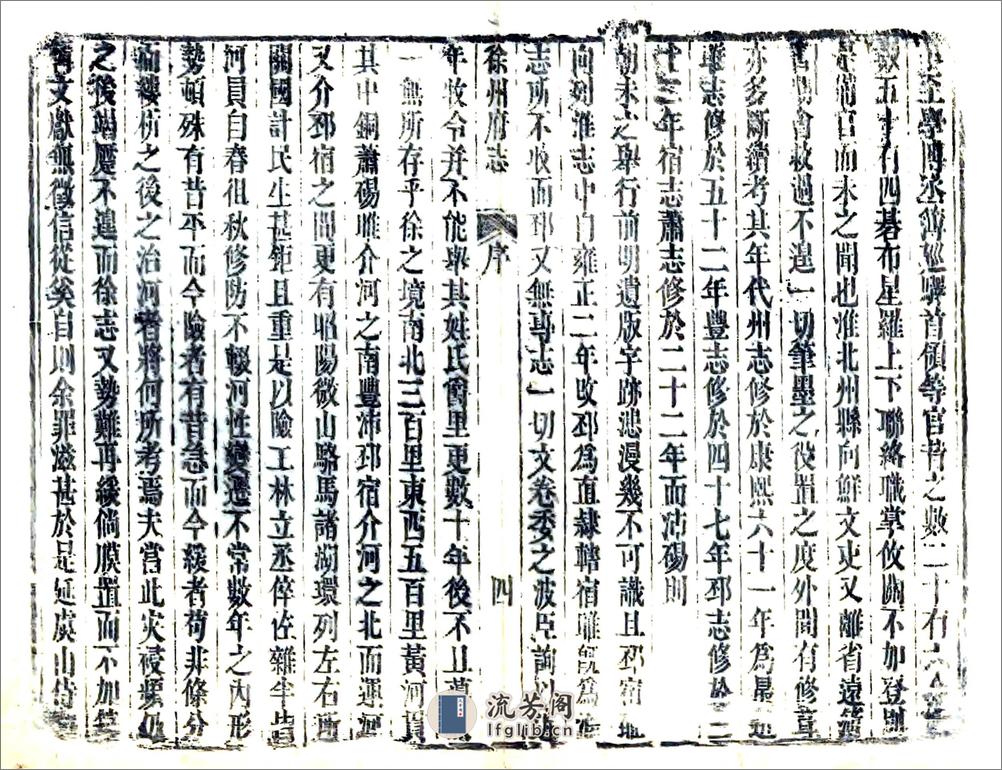 學博丞簿巡驛首領等官昔之數二十有六今
數五十有四碁布星羅上下聯絡職掌攸關不加登
備官而未之聞也淮北州縣向鮮文史又離省遠
會救過不遑一切筆墨之役置之度外間有修葺
亦多斷續考其年代州志修於康熙六十一年為最近
志修於五十二年豐志修於四十七年邳志修於三
十三年宿志蕭志修於二十二年而沾碭則
朝未之舉行前明遺版字跡漶漫幾不可識且邳宿
向列淮志中自雍正二年改邳為直隸轄宿睢既為
志所不收而邳又無專志一切文卷委之波臣詢
徐州府志
序
四
年牧令并不能舉其姓氏爵里更數十年後不且
一無所存乎徐之境南北三百里東西五百里黃河貫
其中銅蕭碭睢介河之南豐沛邳宿介河之北而運河
又介邳宿之間更有昭陽微山駱馬諸湖環列左右
關國計民生甚鉅且重是以險工林立丞倅佐雜半皆
河員自春徂秋修防不輟河性變遷不常數年之內形
勢頓殊有昔平而今險者有昔急而今緩者苟非條分
而縷析之後之治河者將何所考焉夫當此災祲
之後竭蹷不遑而徐志又勢難再緩倘膜置而不加
文獻無徵信從奚自則余罪滋甚於是延虞山
流芳阁
lfglib.cn